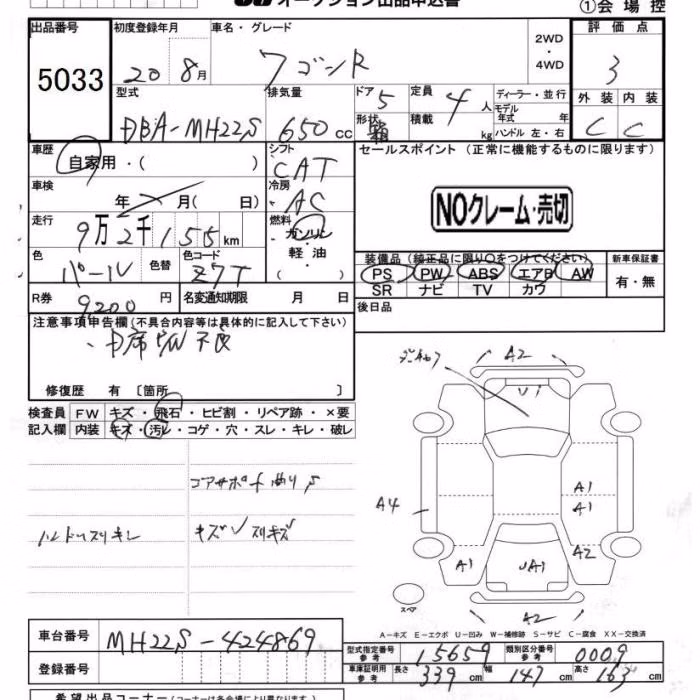 オークション出品申込書
①会場控
出品番号 初度登録年月 車名・グレード 2WD・4WD 評価点
5033 20 8月 ワゴンR 3
型式 排気量 ドア 5 定員 4人 ディーラー・並行 外装 内装
DBA-MH22S 650cc 形状 積載 kg モデル年式 年 ハンドル 左・右 C C
車歴 自家用・( ) シフト CAT セールスポイント (正常に機能するものに限ります)
車検 年 月( 日) 冷房 AC
NOクレーム・売切
走行 9万2千155km 燃料 ガソリン 軽・油 ( )
色 パール 色替 色コード Z7T
装備品 (純正品に限り○をつけてください) 新車保証書
PS PW ABS エアB AW 有・無
SR ナビ TV カワ
R券 9200円 名変通知期限 月 日 後日品
注意事項申告欄(不具合内容等は具体的に記入して下さい)
修復歴 有 〔箇所 〕
検査員 FW キズ・飛石・ヒビ割・リペア跡・×要
記入欄 内装 キズ・汚レ・コゲ・穴・スレ・キレ・破レ
コアサポート曲り
キズ スリキズ
A2
U1
A1
A1
A4
A2
A1
UA1
A2
スペア
A-キズ E-エクボ U-凹み W-補修跡 S-サビ C-腐食 XX-交換済
車台番号 MH22S-424869
型式指定番号 参考 15659 類別区分番号 参考 0009
登録番号
車庫証明用 参考 長さ 339cm 幅 147cm 高さ 163cm
希望出品コーナー